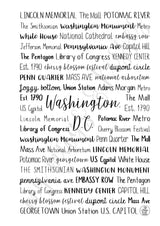 LINCOLN MEMORIAL The Mall POTOMAC RIVER
The Smithsonian WASHINGTON MONUMENT Metro
White House National Cathedral embassy row
Jefferson Memorial Pennsylvania Ave Capitol Hill
The Pentagon Library of Congress KENNEDY CENTER
Est. 1790 cherry blossom festival dupont circle
PENN QUARTER MASS AVE national stadium
foggy bottom Union Station Adams Morgan Metro
Est. 1790 The Mall
US Capitol Est. 1790
White House
Potomac River Metro
Library of Congress Cherry Blossom Festival
Penn Quarter Washington Monument The Mall
Mass Ave National Arboretum LINCOLN MEMORIAL
Potomac River georgetown US Capitol White House
THE SMITHSONIAN WASHINGTON MONUMENT
pennsylvania ave EMBASSY ROW The Pentagon
Library of Congress KENNEDY CENTER CAPITOL HILL
cherry blossom festival dupont circle Mass Ave
GEORGETOWN Union Station U.S. CAPITOL
Washington
D.C.